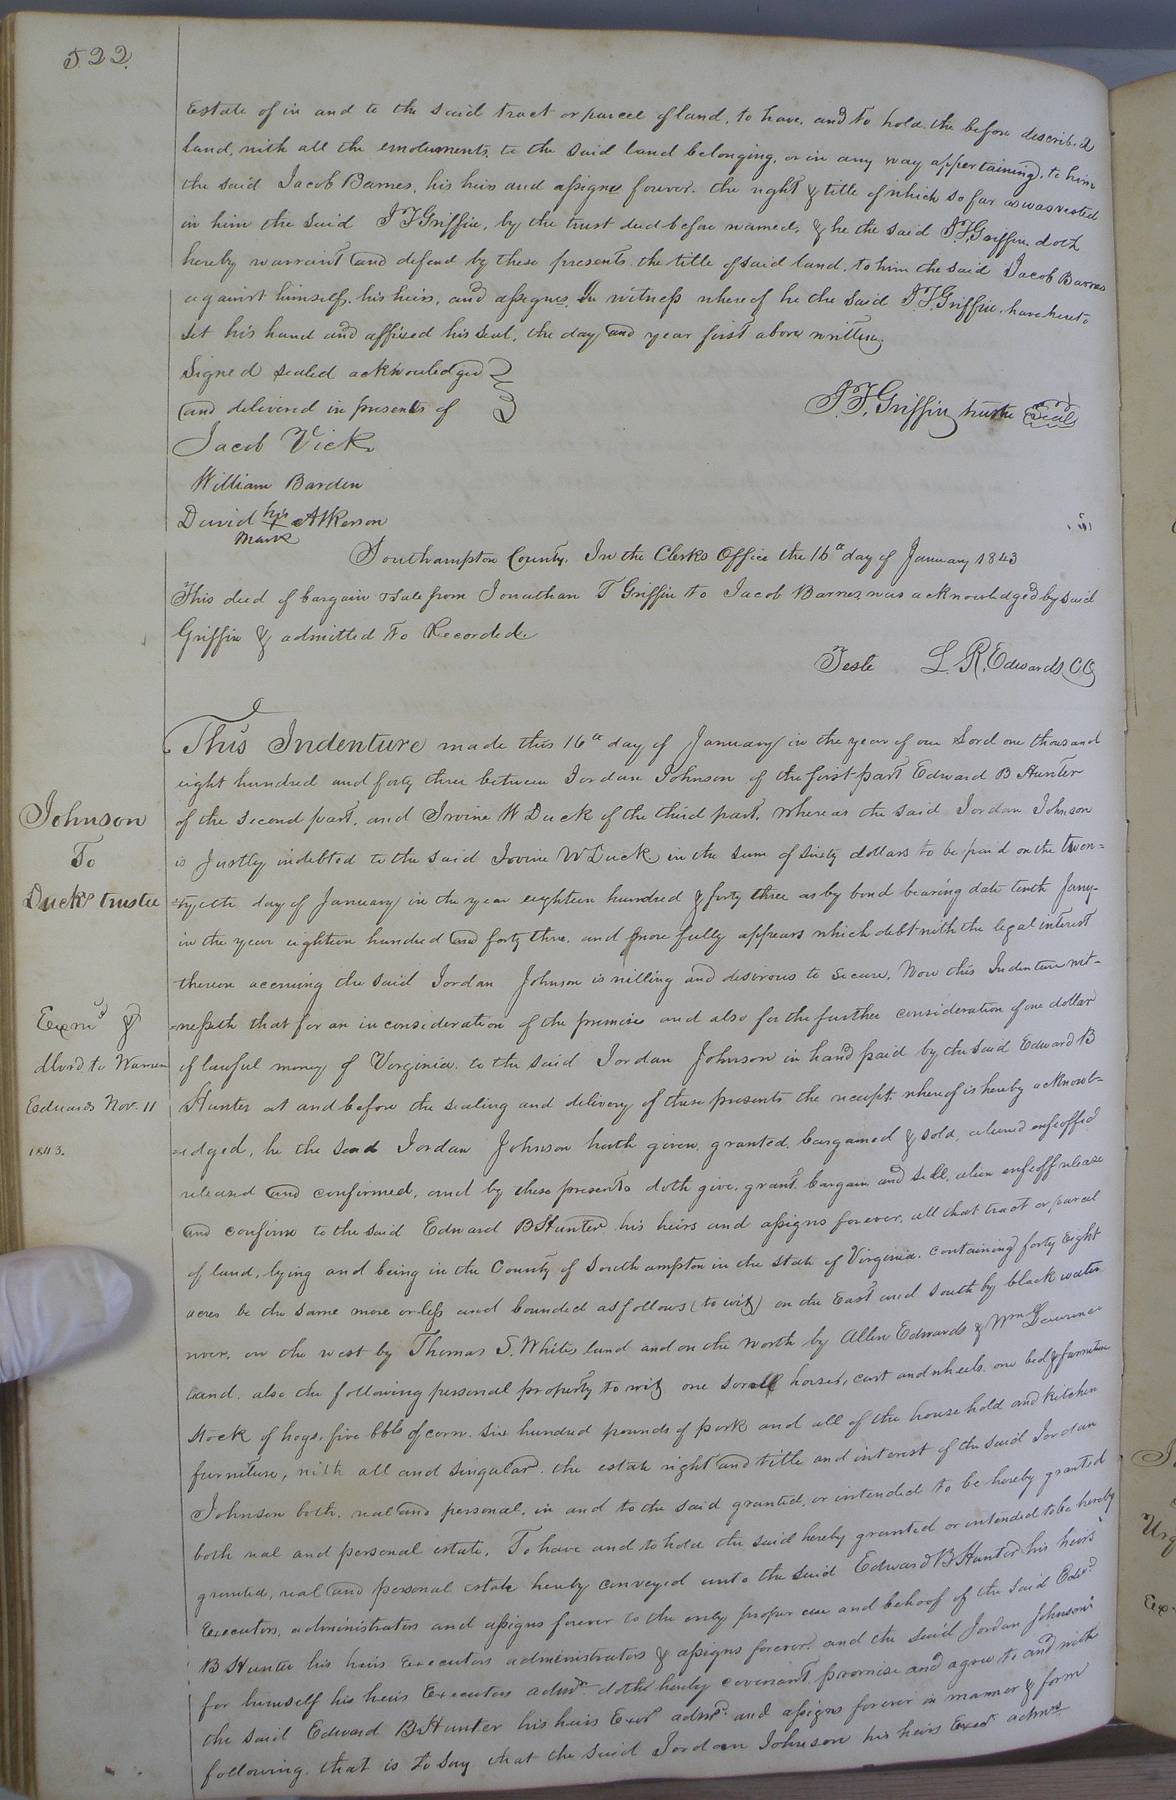 522.
Estate of in and to the said tract or parcel of land, to have, and to hold, the before described
Land, with all the emoluments, to the said land belonging, or in any way appertaining, to him
the said Jacob Barnes, his heirs and assigns forever. the right & title of which so far as was vested
in him the said J T Griffin, by the trust deed before named, & he the said J. T. Griffin doth
hereby warrant and defend by these presents the title of said land, to him the said Jacob Barnes
against himself, his heirs, and assigns. In witness whereof he the said J. T. Griffin, have hereto
set his hand and affixed his seal, the day and year first above written,
Signed sealed acknowledged
and delivered in presents of
J. T. Griffin trustee Seal
Jacob Vick
William Barden
David his Atkerson
X
mark
Southampton County, In the Clerks Office the 16th day of January 1843
This deed of bargain & sale from Jonathan T Griffin to Jacob Barnes, was acknowledged by said
Griffin & admitted to Recorded
Teste L. R. Edwards C C
This Indenture made this 16th day of January in the year of our Lord one thousand
eight hundred and forty three between Jordan Johnson of the first part Edward B Hunter
Johnson
To
Ducks trustee
of the second part, and Irvine W Duck of the third part, Whereas the said Jordan Johnson
is Justly indebted to the said Irvine W Duck in the sum of sixty dollars to be paid on the twen=
=tyeth day of January in the year eighteen hundred & forty three as by bond bearing date tenth Jany-
in the year eighteen hundred and forty three, and more fully appears which debt with the legal interest
thereon accruing the said Jordan Johnson is willing and desirous to secure, Now this Indenture wit-
Exmd &
dlvrd to Warren
Edwards Nov. 11
1843.
=nesseth that for an in consideration of the premises and also for the further consideration of one dollar
of lawful money of Virginia. to the said Jordan Johnson in hand paid by the said Edward B
Hunter at and before the sealing and delivery of these presents the receipt whereof is hereby acknowl=
=edged, he the said Jordan Johnson hath given, granted, bargained & sold, aliened enfeoffed
released and confirmed, and by these presents doth give, grant, bargain and sell, alien enfeoff release
and confirm to the said Edward B Hunter, his heirs and assigns forever, all that tract or parcel
of land, lying and being in the County of Southampton in the state of Virginia. containing forty eight
acres be the same more or less and bounded as follows (to wit) on the East and South by black water
river, on the west by Thomas S. Whites land and on the North by Allen Edwards & Wm Lawrence
land. also the following personal property to wit one sorell horse, cart and wheels, one bed & furniture
Stock of hogs, five bbls of corn, six hundred pounds of pork and all of the house hold and kitchen
furniture, with all and singular, the estate right and title and interest of the said Jordan
Johnson both, real and personal, in and to the said granted, or intended to be hereby granted
both real and personal estate, To have and to hold the said hereby granted or intended to be hereby
granted, real and personal estate hereby conveyed unto the said Edward B Hunter, his heirs
Executors, administrators and assigns forever to the only proper use and behoof of the said Edwd
B Hunter his heirs Executors administrators & assigns forever, and the said Jordan Johnson
for himself his heirs Executors admrs doth hereby covenant promise and agree to and with
the said Edward B Hunter his heirs Exors admrs and assigns forever in manner & form
following, that is to say that the said Jordan Johnson his heirs Exors admrs